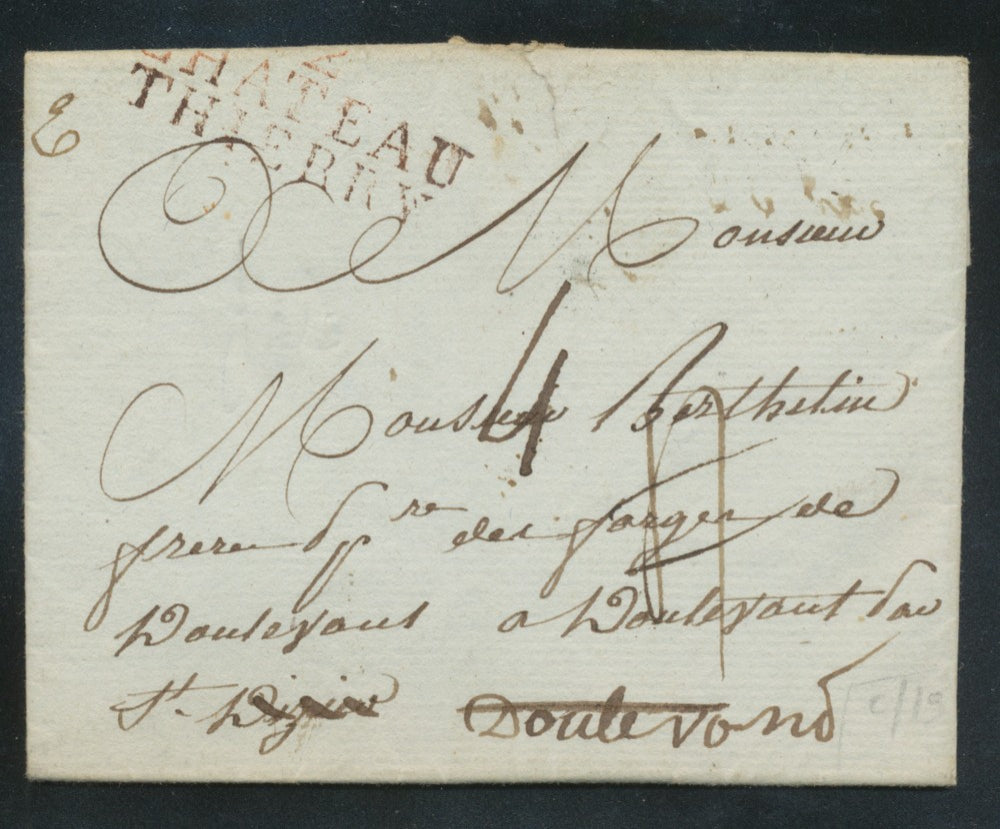 2
CHATEAU
THIERRY
Monsieur
4
Monsieur Berthelin
frere pre des forges de
Doulevant a Doulevant par
St. Dizier Doulevand